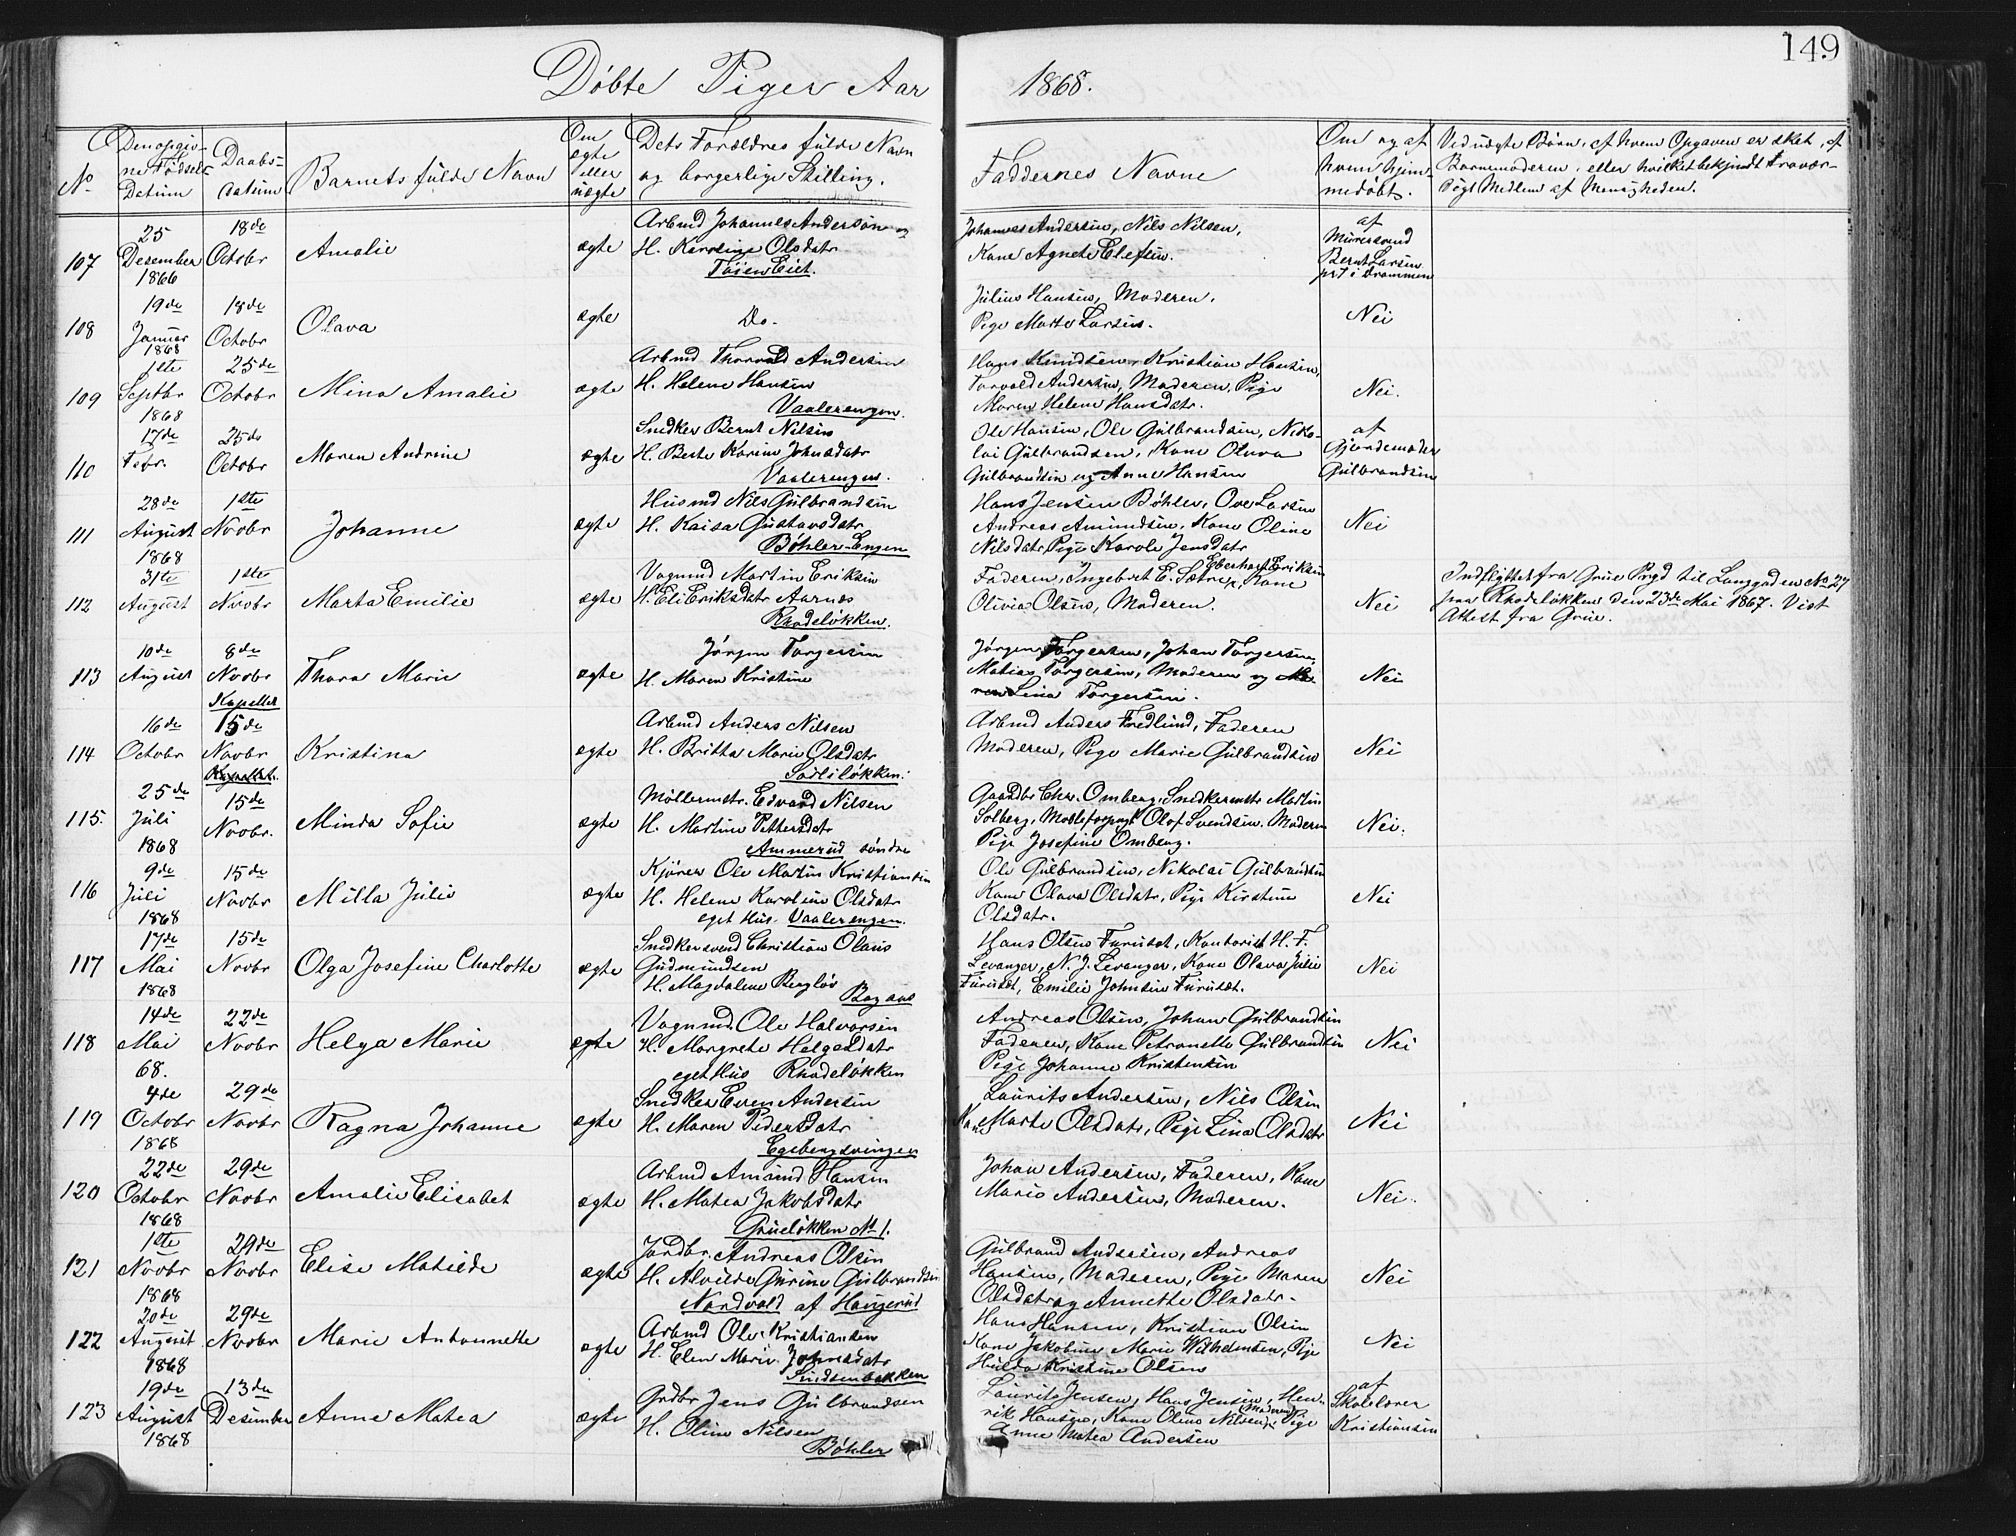 149
Døbte Piger Aar 1868.
No
Den opgiv-
ne Fødsels
Datum
Daabs-
datum
Barnets fulde Navn
Om
ægte
eller
uægte
Dets Forældres fulde Navn
og borgerlige Stilling.
Faddernes Navne
Om og af
hvem hjem-
medøbt.
Ved uægte Børn, af hvem Opgaven er sket, af
Barnemoderen, eller hvilket bekjendt trovær-
digt Medlem af Menigheden.
107
25
Desember
1866
18de
Octobr
Amalie
ægte
Arbmd Johannes Andersen og
H. Karoline Olsdatr
Tøien Eiet.
Johannes Andersen, Nils Nilsen,
Kone Agnete Elefsen.
af
Murersvend
Bernt Larsen
prt i Drammen
108
19de
Januar
1868
18de
Octobr
Olava
ægte
Do.
Julius Hansen, Moderen,
Pige Marte Larsen.
Nei
109
1ste
Septbr
1868
25de
Octobr
Mina Amalie
ægte
Arbmd Thorvald Andersen
H. Helene Hansen
Vaalerengen.
Hans Knudsen, Kristian Hansen,
Torvald Andersen, Moderen, Pige
Maren Helene Hansdatr.
Nei.
110
17de
Febr.
25de
Octobr
Maren Andrine
ægte
Snedker Bernt Nilsen
H. Berte Karine Johnsdatr
Vaalerengen.
Ole Hansen, Ole Gulbrandsen, Niko-
lai Gulbrandsen, Kone Olava
Gulbrandsen og Anne Hansen
af
Gjordemoder
Gulbrandsen
111
28de
August
1868
1ste
Novbr
Johanne
ægte
Husmd Nils Gulbrandsen
H. Kaisa Gustavsdatr
Bøhler-Engen
Hans Jensen Bøhler, Ove Larsen
Andreas Amundsen, Kone Oline
Nilsdatr, Pige Karole Jensdatr
Nei
112
31te
August
1ste
Novbr
Marta Emilie
ægte
Vognmd Martin Eriksen
H. Eli Eriksdatr Aarnæs
Rhodeløkken.
Eberhart Eriksen
Faderen, Ingebret E. Sætre, Kone
Olivia Olsen, Moderen.
Nei
Indflyttet fra Grue Prgd til Langgaden No 27
paa Rhodeløkken den 23de Mai 1867. Vist
Attest fra Grue.
113
10de
August
8de
Novbr
Kapellet
Thora Marie
ægte
Jørgen Torgersen
H. Maren Kristine
Jørgen Torgersen, Johan Torgersen,
Matias Torgersen, Moderen og Ma-
ren Lina Torgersen.
Nei
114
16de
Octobr
15de
Novbr
Kapellet.
Kristina
ægte
Arbmd Anders Nilsen
H. Britta Marie Olsdatr
Sorliløkken.
Arbmd Anders Fredlund, Faderen
Moderen, Pige Marie Gulbrandsen
Nei
115.
25de
Juli
1868
15de
Novbr.
Minda Sofie
ægte
Møllermstr. Edvard Nilsen
H. Martine Pettersdatr
Ammerud søndre
Gaardbr Chr. Omberg, Snedkermstr Martin
Solberg, Mølleforpagt Olof Svendsen. Moderen
Pige Josefine Omberg.
Nei.
116
9de
Juli
1868
15de
Novbr
Milla Julie
ægte
Kjører Ole Martin Kristiansen
H. Helene Karoline Olsdatr
eget Hus Vaalerengen.
Ole Gulbrandsen, Nikolai Gulbrandsen
Kone Olava Olsdatr, Pige Kirstine
Olsdatr.
Nei
117
17de
Mai
1868
15de
Novbr
Olga Josefine Charlotte
ægte
Snedkersvend Christian Olaus
Gudmundsen
H. Magdalene Bergløv
Bogaas
Hans Olsen Furuset, Kontorist H. F.
Levanger, N. J. Levanger, Kone Olava Julie
Furuset, Emilie Johnsen Furuset.
Nei
118
14de
Mai
68.
22de
Novbr
Helga Marie
ægte
Vognmd. Ole Halvorsen
H. Margrete Helgesdatr
eget Hus Rhodeløkken
Andreas Olsen, Johan Gulbrandsen
Faderen, Kone Petronelle Gulbrandsen
Pige Johanne Kristensen
Nei
119
4de
Octobr
1868
29de
Novbr
Ragna Johanne
ægte
Snedker Even Andersen
H. Maren Pedersdatr
Egebergsvingen
Laurits Andersen, Nils Olsen
Kone Marte Olsdatr, Pige Lina Olsdatr
Nei
120
22de
Octobr
1868
29de
Novbr
Amalie Elisabet
ægte
Arbmd Amund Hansen
H. Matea Jakobsdatr
Grueløkken No 1.
Johan Andersen, Faderen, Kone
Marie Andersen, Moderen.
Nei.
121
1ste
Novbr
1868
29de
Novbr
Elise Matilde
ægte
Jordbr. Andreas Olsen
H. Alvilde Gurine Gulbrandsen
Nordvold af Haugerud
Gulbrand Andersen, Andreas
Hansen, Moderen, Pige Maren
Olsdatr og Annette Olsdatr.
Nei
122
20de
August
1868
29de
Novbr
Marie Antonnette
ægte
Arbmd Ole Kristiansen
H. Elen Marie Johnsdatr
Sindsenbakken
Hans Hansen, Kristian Olsen
Kone Jakobine Marie Wilhelmsen, Pige
Hulda Kristine Olsen
Nei
123
19de
August
1868
13de
Desember
Anne Matea
ægte
Grdbr Jens Gulbrandsen
H. Oline Nilsen
Bøhler
Laurits Jensen, Hans Jensen, Hen-
rik Hansen, Kone Oline Nilsen (Moderen), Pige
Anne Matea Andersen
af
Skolelærer
Kristiansen